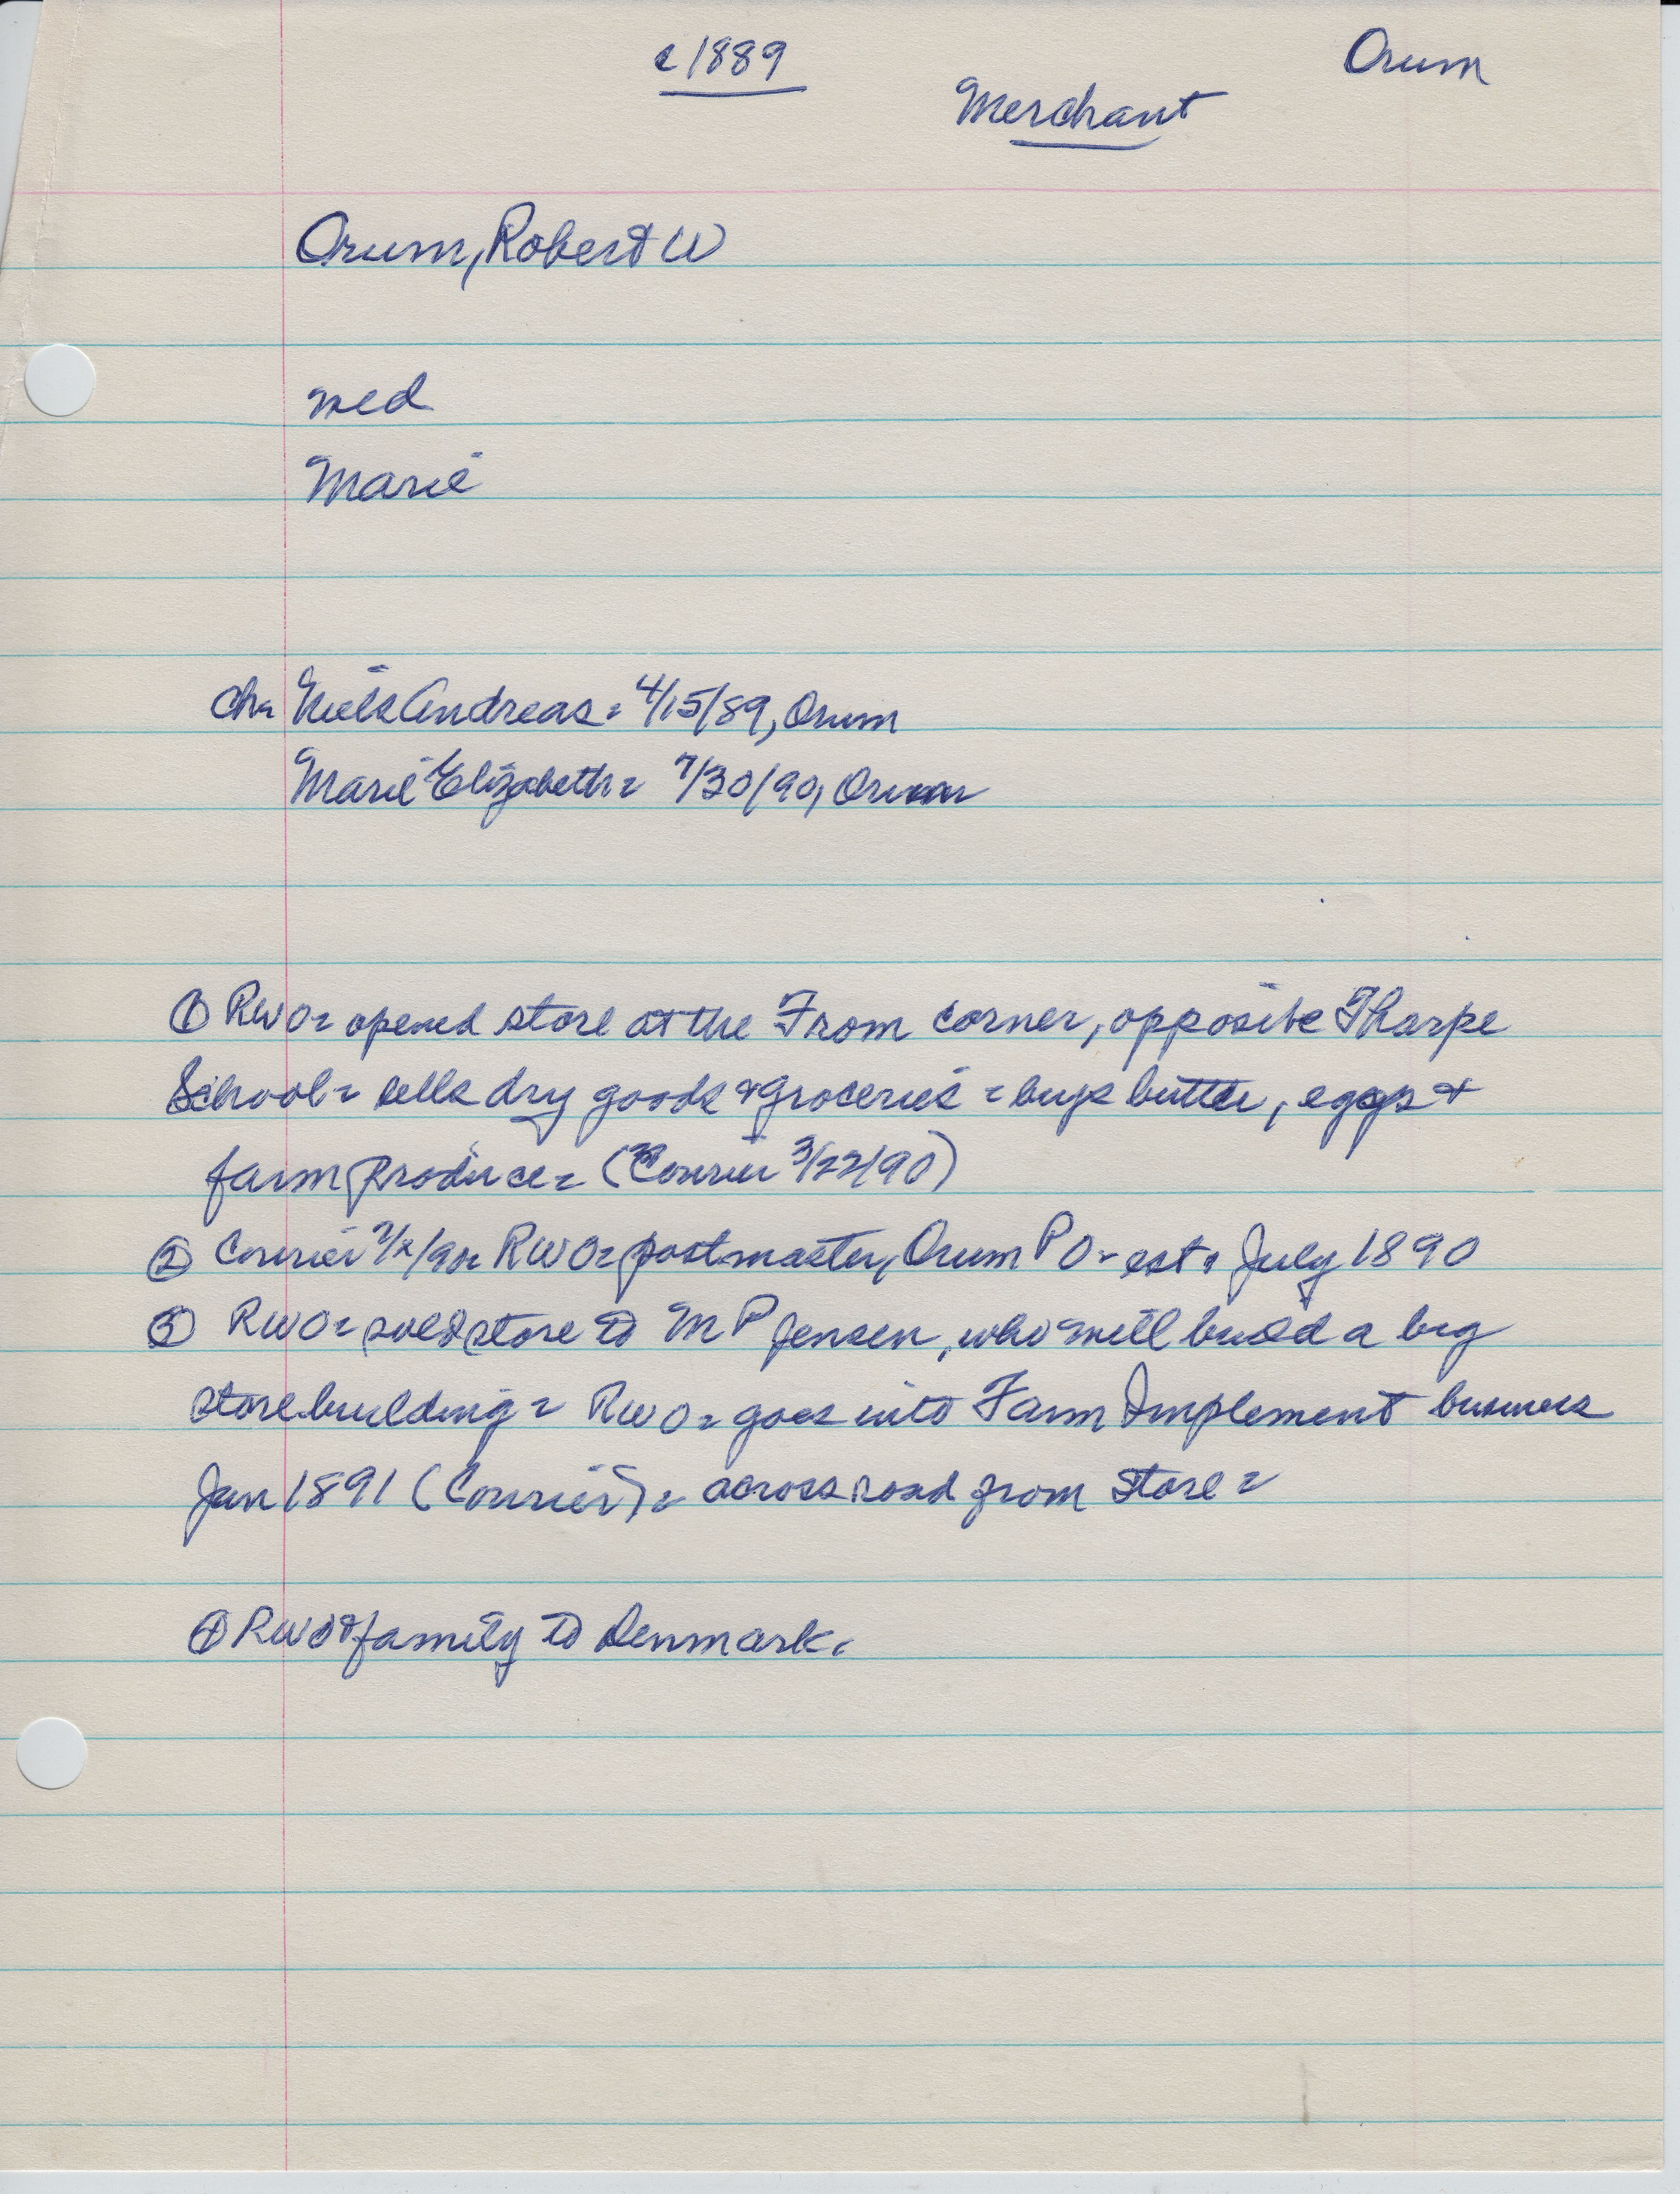 c 1889
Orum
Merchant
Orum, Robert W
med
Marie
ch= Niels Andreas = 4/15/89, Orum
Marie Elizabeth = 7/30/90, Orum
① RWO = opened store at the From corner, opposite Tharpe
School = sells dry goods & groceries = buys butter, eggs &
farm produce = (Courier 3/22/90)
② Courier RWO = postmaster, Orum P O = est. July 1890
③ RWO = sold store to M P Jensen, who will build a big
store building = RWO = goes into Farm Implement business
Jan 1891 (Courier) = across road from store =
④ RWO & family to Denmark.